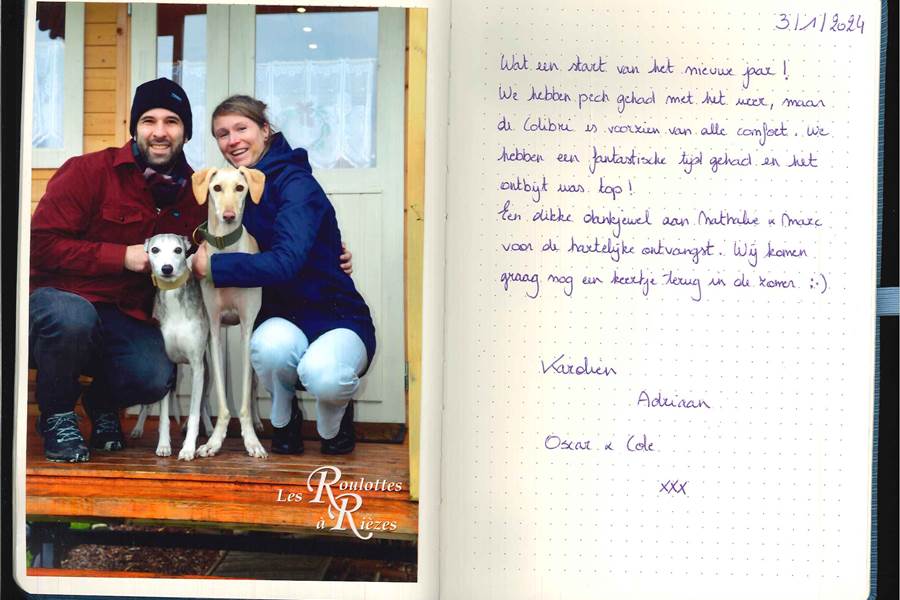 Les Roulottes
à Rièzes
3/1/2024
Wat een start van het nieuwe jaar!
We hebben pech gehad met het weer, maar
de Colibri is voorzien van alle comfort. We
hebben een fantastische tijd gehad en het
ontbijt was top!
Een dikke dankjewel aan Nathalie & Marc
voor de hartelijke ontvangst. Wij komen
graag nog een keertje terug in de zomer :-)
Karolien
Adriaan
Oscar & Cole
xxx